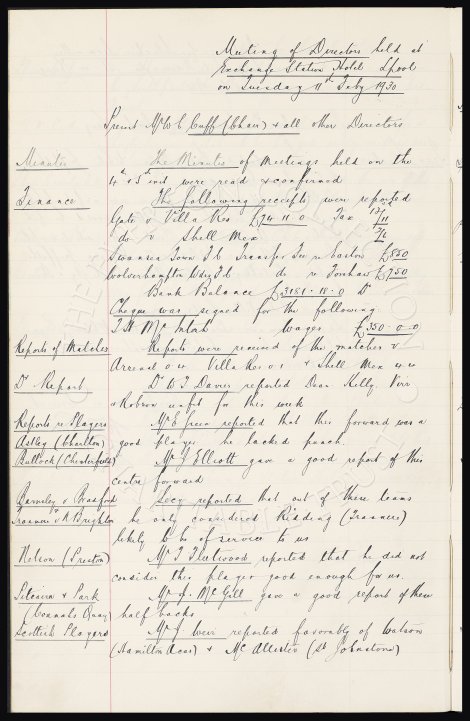 Meeting of Directors held at
Exchange Station Hotel Lpool
on Tuesday 11th Feby 1930
Present Mr W C Cuff (Chair) & all other Directors
Minutes The Minutes of Meetings held on the
4th & 5th inst were read & confirmed
Finance The following receipts were reported
Gate v Villa Res £74 11 0 Tax
do v Shell Mex
Swansea Town Fc Transfer Fee £850
Wolverhampton Wdrs Fc do £750
Bank Balance £3181 - 18 - 0 Dr
Cheque was signed for the following
T H McIntosh Wages £350 - 0 - 0
Reports of Matches Reports were received of the matches v
Arsenal Villa Res & Shell Mex
Dr Report Dr W J Davies reported Dean Kelly
& Robson unfit for this week
Reports re Players Mr E Green reported that this forward was a
Astley (Charlton) good player he lacked punch
Bullock (Chesterfield) Mr J Elliott gave a good report of this
centre forward
Barnsley v Bradford Secy reported that out of these teams
Tranmere v N Brighton he only considered Ridding (Tranmere)
likely to be of service to us
Nelson (Preston) Mr T Fleetwood reported that he did not
consider this player good enough for us.
& Park Mr J McGill gave a good report of these
(Connahs Quay) half backs
Scottish Players Mr J Weir reported favorably of Watson
(Hamilton Acas) & McAllister (St Johnstone)